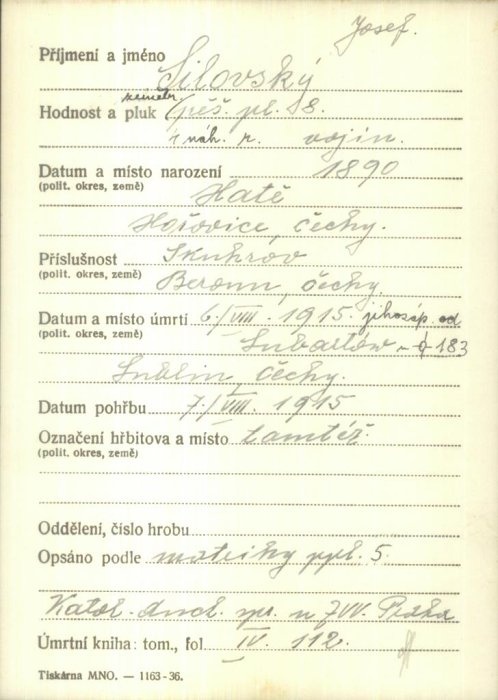 Josef.
Příjmení a jméno Silovský
zeměbr.
Hodnost a pluk pěš. pl. 8.
1 náh. r. vojín.
Datum a místo narození 1890
(polit. okres, země) Hatě
Hořovice, čechy.
Příslušnost Skuhrov
(polit. okres, země) Beroun, čechy
Datum a místo úmrtí 6./VIII. 1915. jihozáp. od
(polit. okres, země) Lubartów - 183
Lublin, čechy.
Datum pohřbu 7./VIII. 1915
Označení hřbitova a místo tamtéž.
(polit. okres, země)
Oddělení, číslo hrobu
Opsáno podle matriky ppl. 5.
Katol. duch. spr. u ZVV. Praha
Úmrtní kniha: tom., fol. IV. 112.
Tiskárna MNO. — 1163-36.